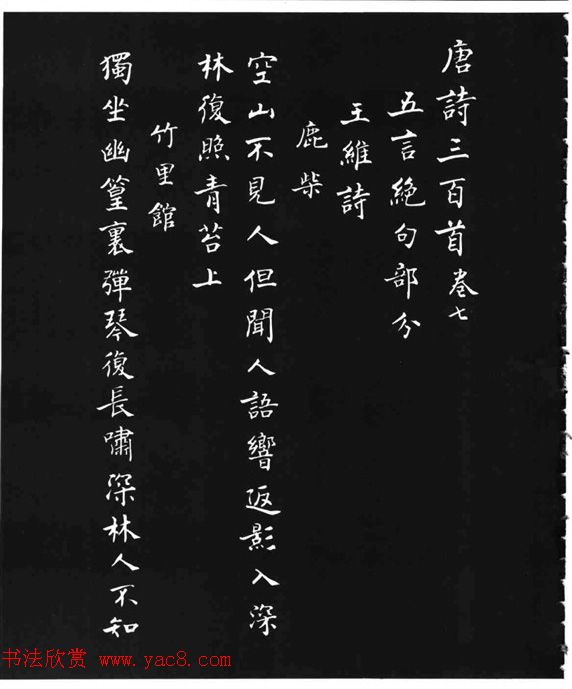 唐詩三百首卷七
五言絕句部分
王維詩
鹿柴
空山不見人但聞人語響返影入深
林復照青苔上
竹里館
獨坐幽篁裏彈琴復長嘯深林人不知
书法欣赏 www.yac8.com